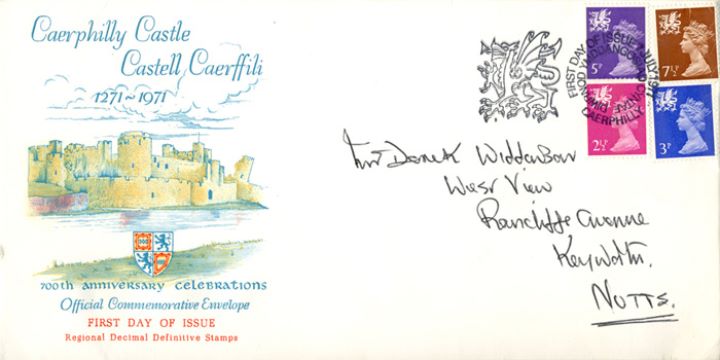 Caerphilly Castle
Castell Caerffili
1271~1971
700th anniversary celebrations
Official Commemorative Envelope
FIRST DAY OF ISSUE
Regional Decimal Definitive Stamps
5P
7½P
2½P
3P
FIRST DAY OF ISSUE 7 JULY 1971
CAERPHILLY
Derek
West View
Rancliffe Avenue
Keyworth.
NOTTS.